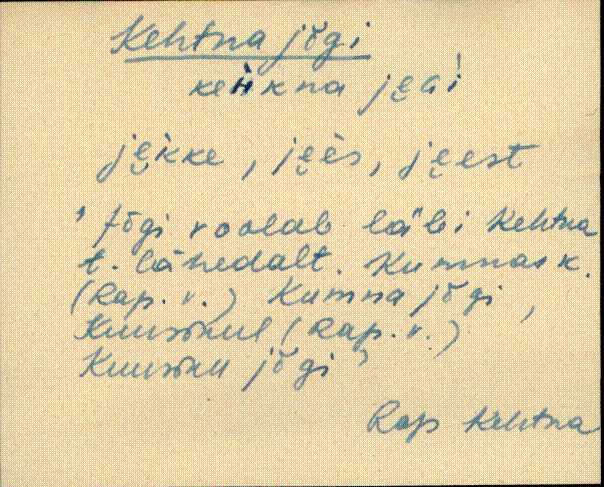 Kehtna jõgi
keh̀kna jȩGi
jȩ̀kke, jȩ̀ès, jȩest
' Jõgi voolab läbi Kehtna
t. lähedalt. Kumnas k.
(Rap. v.) Kumna jõgi,
Kuusikul (Rap. v.)
Kuusiku jõgi '
Rap Kehtna